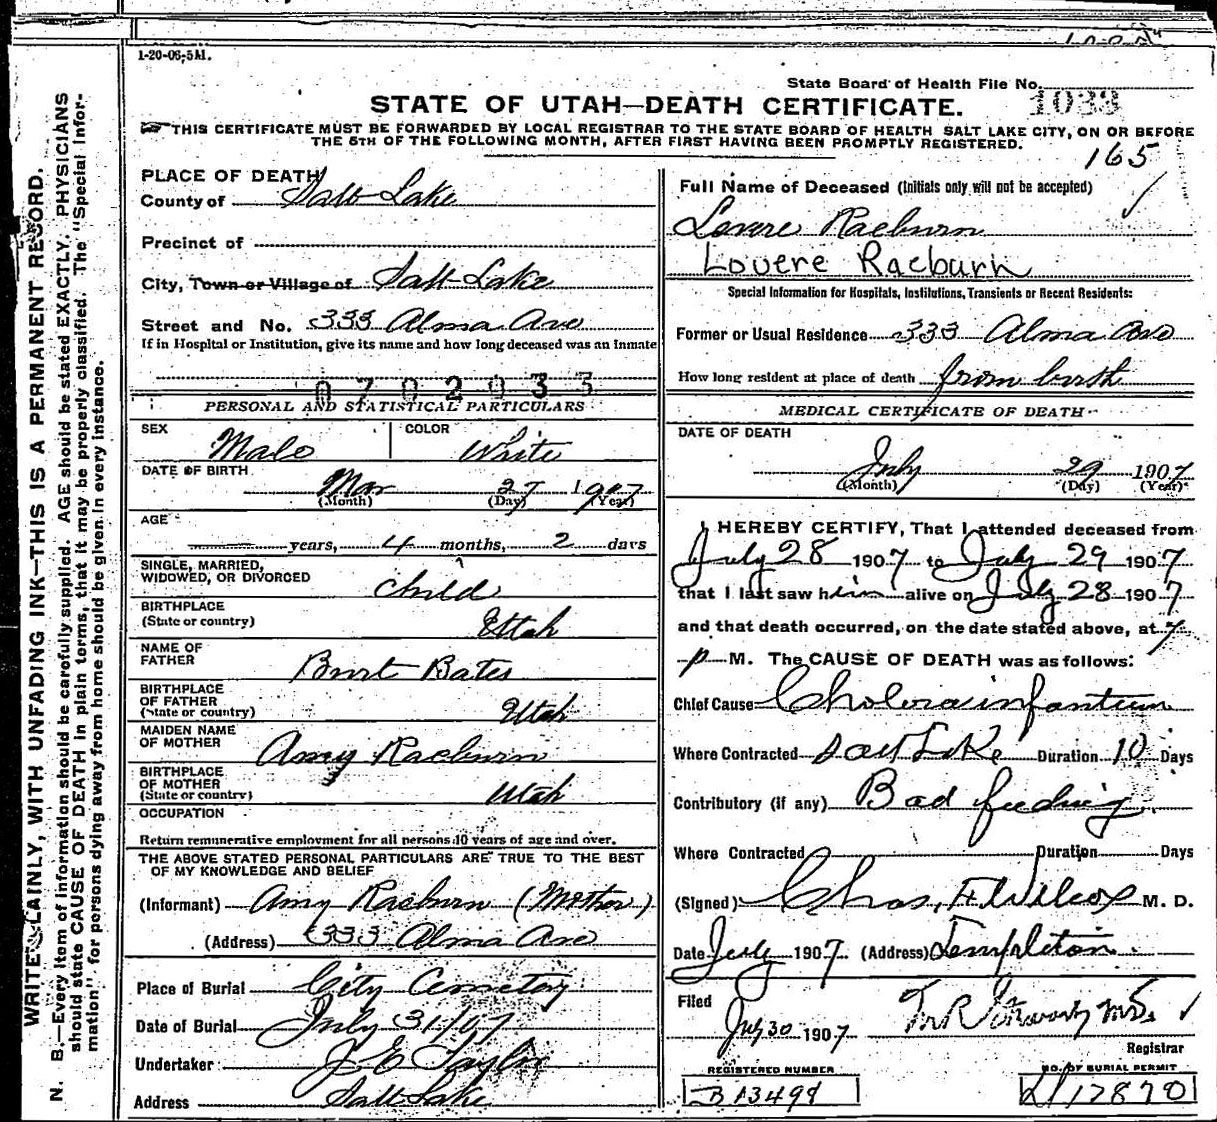 1-20-06-5M.
State Board of Health File No. 1033
STATE OF UTAH—DEATH CERTIFICATE.
THIS CERTIFICATE MUST BE FORWARDED BY LOCAL REGISTRAR TO THE STATE BOARD OF HEALTH SALT LAKE CITY, ON OR BEFORE
THE 5TH OF THE FOLLOWING MONTH, AFTER FIRST HAVING BEEN PROMPTLY REGISTERED.
165
WRITE PLAINLY, WITH UNFADING INK—THIS IS A PERMANENT RECORD.
N. B.—Every item of information should be carefully supplied. AGE should be stated EXACTLY, PHYSICIANS
should state CAUSE OF DEATH in plain terms, that it may be properly classified. The "Special Infor-
mation" for persons dying away from home should be given in every instance.
PLACE OF DEATH
County of Salt Lake
Precinct of
City, Town or Village of Salt Lake
Street and No. 333 Alma Ave
If in Hospital or Institution, give its name and how long deceased was an Inmate
0702933
PERSONAL AND STATISTICAL PARTICULARS
SEX Male COLOR White
DATE OF BIRTH Mar 27 1907
(Month) (Day) (Year)
AGE
years, 4 months, 2 days
SINGLE, MARRIED,
WIDOWED, OR DIVORCED child
BIRTHPLACE
(State or country) Utah
NAME OF
FATHER Burt Bates
BIRTHPLACE
OF FATHER
(State or country) Utah
MAIDEN NAME
OF MOTHER Amy Raeburn
BIRTHPLACE
OF MOTHER
(State or country) Utah
OCCUPATION
Return remunerative employment for all persons 10 years of age and over.
THE ABOVE STATED PERSONAL PARTICULARS ARE TRUE TO THE BEST
OF MY KNOWLEDGE AND BELIEF
(Informant) Amy Raeburn (Mother)
(Address) 333 Alma Ave
Place of Burial City Cemetery
Date of Burial July 31/07
Undertaker J E Taylor
Address Salt Lake
Full Name of Deceased (Initials only will not be accepted)
Lovere Raeburn
Louere Raeburn
Special Information for Hospitals, Institutions, Transients or Recent Residents:
Former or Usual Residence 333 Alma Ave
How long resident at place of death from birth
MEDICAL CERTIFICATE OF DEATH
DATE OF DEATH
July 29 1907
(Month) (Day) (Year)
I HEREBY CERTIFY, That I attended deceased from
July 28 1907 to July 29 1907
that I last saw him alive on July 28 1907
and that death occurred, on the date stated above, at 7
p M. The CAUSE OF DEATH was as follows:
Chief Cause Cholera infantum
Where Contracted Salt Lake Duration 10 Days
Contributory (if any) Bad feeding
Where Contracted Duration Days
(Signed) Chas. F Wilcox M. D.
Date July 1907 (Address) Templeton
Filed
July 30 1907
Registrar
REGISTERED NUMBER
B 13499
NO. OF BURIAL PERMIT
17870